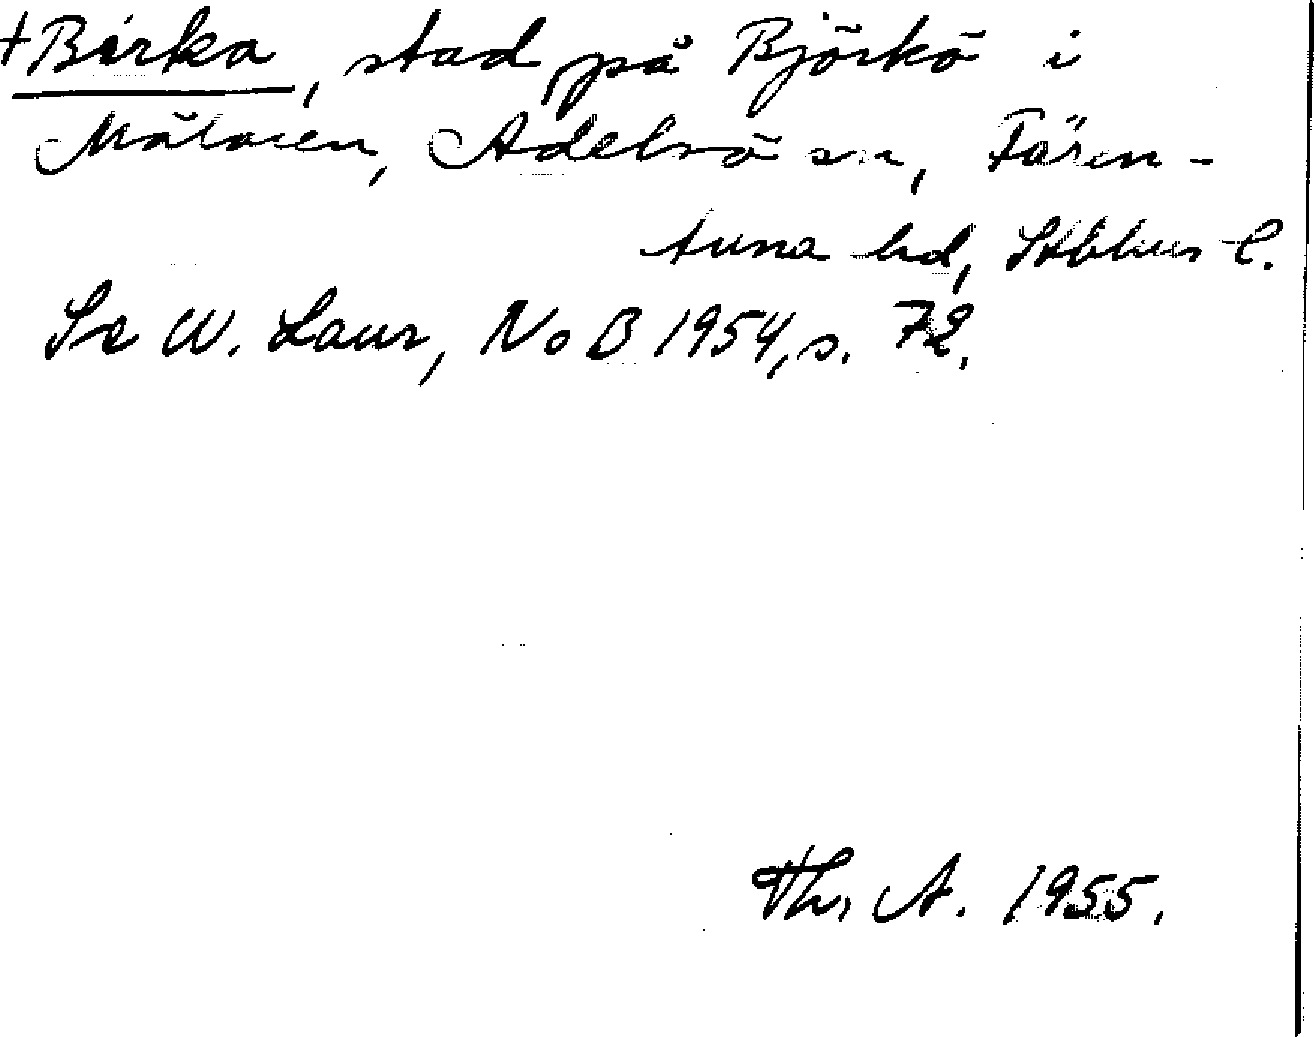 +Birka, stad på Björkö i
Mälaren, Adelsö sn, Fären-
tuna hd, Sthlms l.
Se W. Laur, NoB 1954, s. 72.
Th. A. 1955.